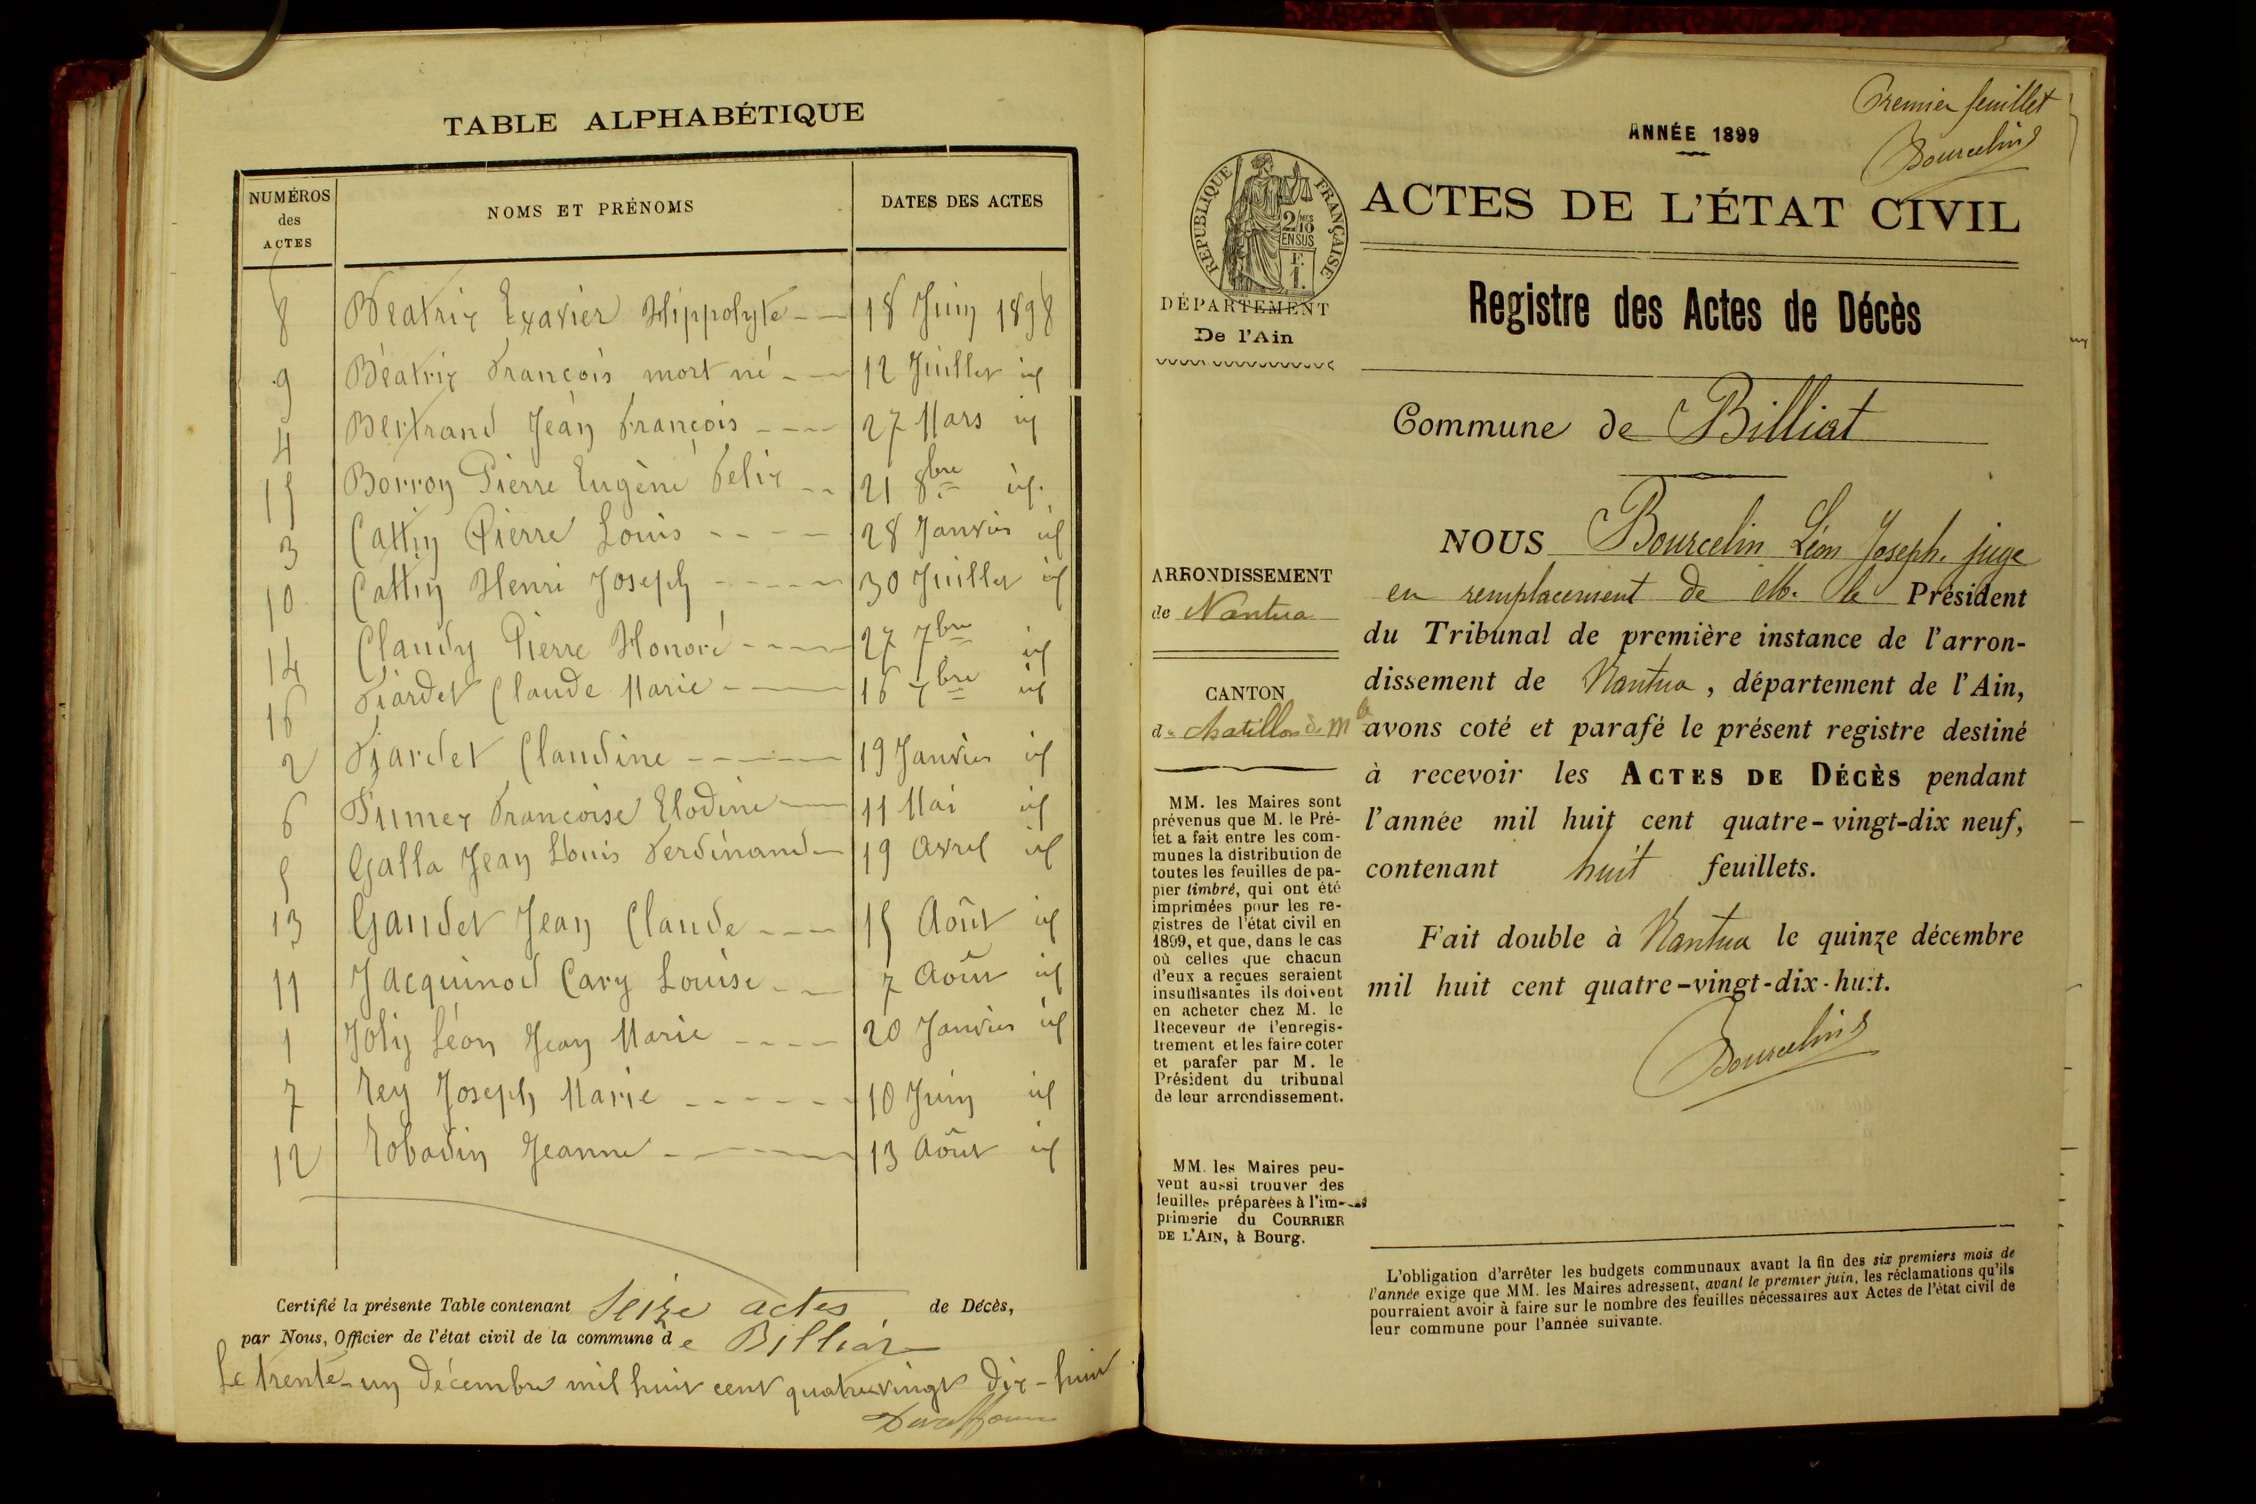 TABLE ALPHABÉTIQUE
NUMÉROS
des
ACTES
NOMS ET PRÉNOMS
DATES DES ACTES
8 Béatrix Exavier Hippolyte 18 Juin 1898
9 Béatrix François mort né 12 Juillet id
4 Bertrand Jean François 27 Mars id
15 Borron Pierre Eugène Felix 21 8bre id.
3 Cattin Pierre Louis 28 Janvier id
10 Cattin Henri Joseph 30 Juillet id
14 Claudy Pierre Honoré 27 7bre id
16 Claude Marie 16 id
2 Claudine 19 Janvier id
6 Françoise Elodine 11 Mai id
5 Galla Jean Louis Ferdinand 19 avril id
13 Gaudet Jean Claude 15 Août id
11 Jacquinod Cary Louise 7 Août id
1 Joly Léon Jean Marie 20 Janvier id
7 Rey Joseph Marie 10 Juin id
12 Robadin Jeanne 13 Août id
Certifié la présente Table contenant Seize actes de Décès,
par Nous, Officier de l'état civil de la commune de Billiat
Le trente-un décembre mil huit cent quatre vingt dix-huit
Premier feuillet
Bourcelin
ANNÉE 1899
RÉPUBLIQUE FRANÇAISE
2/10
EN SUS
F.
1.
ACTES DE L'ÉTAT CIVIL
DÉPARTEMENT
De l'Ain
Registre des Actes de Décès
Commune de Billiat
ARRONDISSEMENT
de Nantua
CANTON
de Chatillon de Mlle
MM. les Maires sont
prévenus que M. le Pré-
fet a fait entre les com-
munes la distribution de
toutes les feuilles de pa-
pier timbré, qui ont été
imprimées pour les re-
gistres de l'état civil en
1899, et que, dans le cas
où celles que chacun
d'eux a reçues seraient
insuffisantes ils doivent
en acheter chez M. le
Receveur de l'enregis-
trement et les faire coter
et parafer par M. le
Président du tribunal
de leur arrondissement.
MM. les Maires peu-
vent aussi trouver des
feuilles préparées à l'im-
primerie du COURRIER
DE L'AIN, à Bourg.
NOUS Bourcelin Léon Joseph, juge
en remplacement de M. le Président
du Tribunal de première instance de l'arron-
dissement de Nantua, département de l'Ain,
avons coté et parafé le présent registre destiné
à recevoir les ACTES DE DÉCÈS pendant
l'année mil huit cent quatre-vingt-dix neuf,
contenant huit feuillets.
Fait double à Nantua le quinze décembre
mil huit cent quatre-vingt-dix-huit.
Bourcelin
L'obligation d'arrêter les budgets communaux avant la fin des six premiers mois de
l'année exige que MM. les Maires adressent, avant le premier juin, les réclamations qu'ils
pourraient avoir à faire sur le nombre des feuilles nécessaires aux Actes de l'état civil de
leur commune pour l'année suivante.